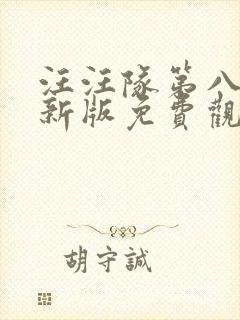 汪汪隊第八
新版免費觀
胡守誠